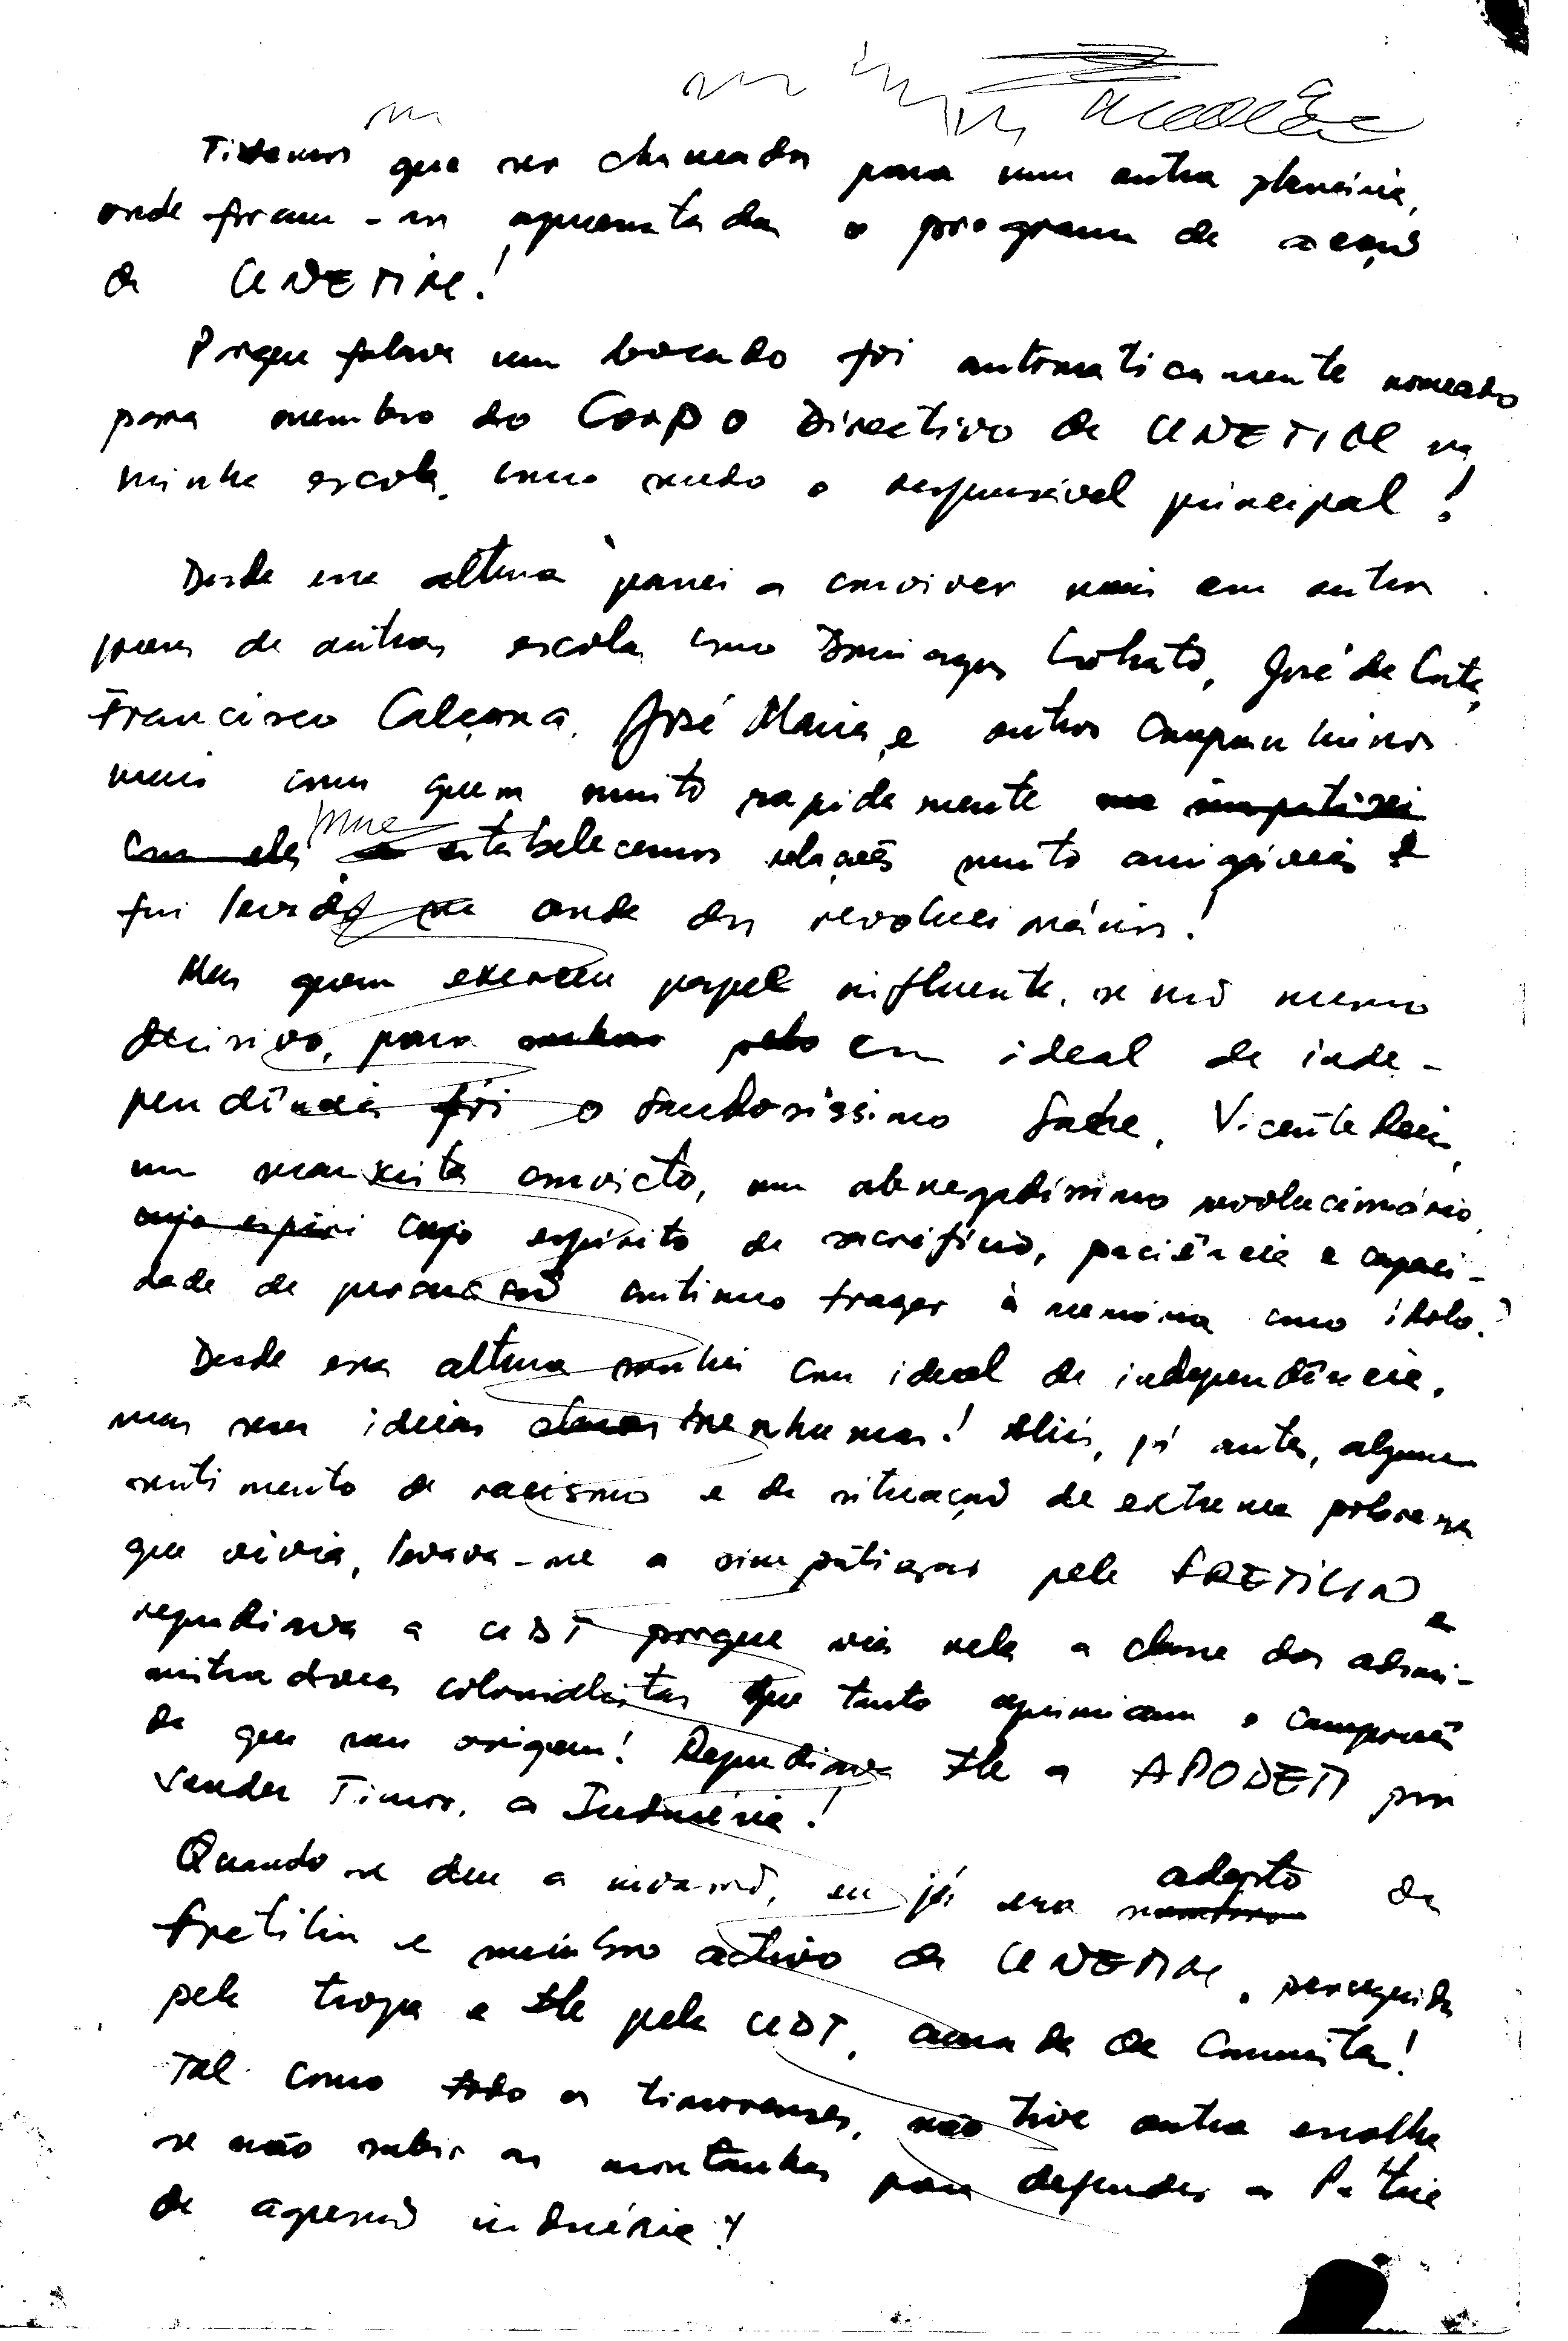 Tivemos que ser chamados para uma outra plenária,
onde foram-nos apresentadas o programa de acção
da UNETIM!
Porque falava um bocado foi automaticamente nomeado
para membro do Corpo Directivo da UNETIM na
minha escola, como sendo o responsável principal!
Desde essa altura passei a conviver mais com outros
jovens de outras escolas como Domingos Lobato, José da Costa,
Francisco Calçona, José Maria, e outros companheiros
mais com quem muito rapidamente me simpatizei
com eles estabelecemos relações muito amigáveis e
fui levado na onda dos revolucionários!
Mas quem exerceu papel influente, se não mesmo
decisivo, para pelo com ideal de inde-
pendência foi o saudosíssimo Sahe, Vicente Reis,
um marxista convicto, um abnegadíssimo revolucionário,
cujo espíri cujo espírito de sacrifício, paciência e capaci-
dade de persuasão continuo trazer à memória como ídolo!
Desde essa altura sonhei com ideal de independência,
mas sem ideias claras nenhumas! Aliás, já antes, algumas
sentimento de racismo e da situação de extrema pobreza
que vivia, levava-me a simpatizar pela FRETILIN e
repudiava a UDT porque via nela a classe dos admi-
nistradores colonialistas que tanto oprimiam o camponês
de que sou origem! Repudiava tbe a APODETI por
vender Timor, a Indonésia!
Quando se deu a invasão, eu já era adepto da
Fretilin e membro activo da UNETIM, perseguida
pela tropa e tbe pela UDT, acusada de Comunistas!
Tal como todo os timorenses, não tive outra escolha
se não subir as montanhas para defender a Pátria
da agressão indonésia!